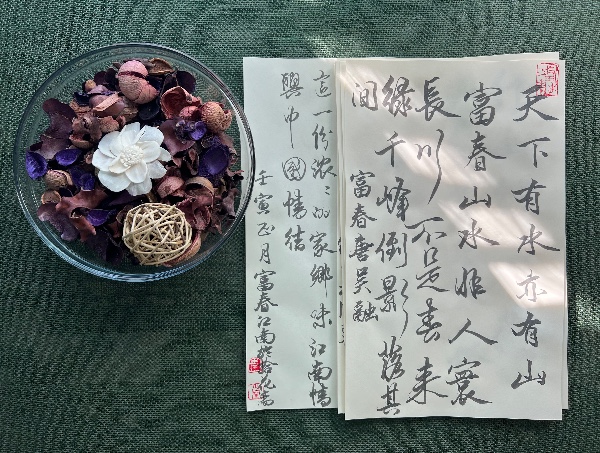 天下有水亦有山
富春山水非人寰
長川不是春来
綠千峰倒影落其
間 富春唐吴融
這一份浓々的家鄉味江南情
與中國情结
壬寅正月富春江南